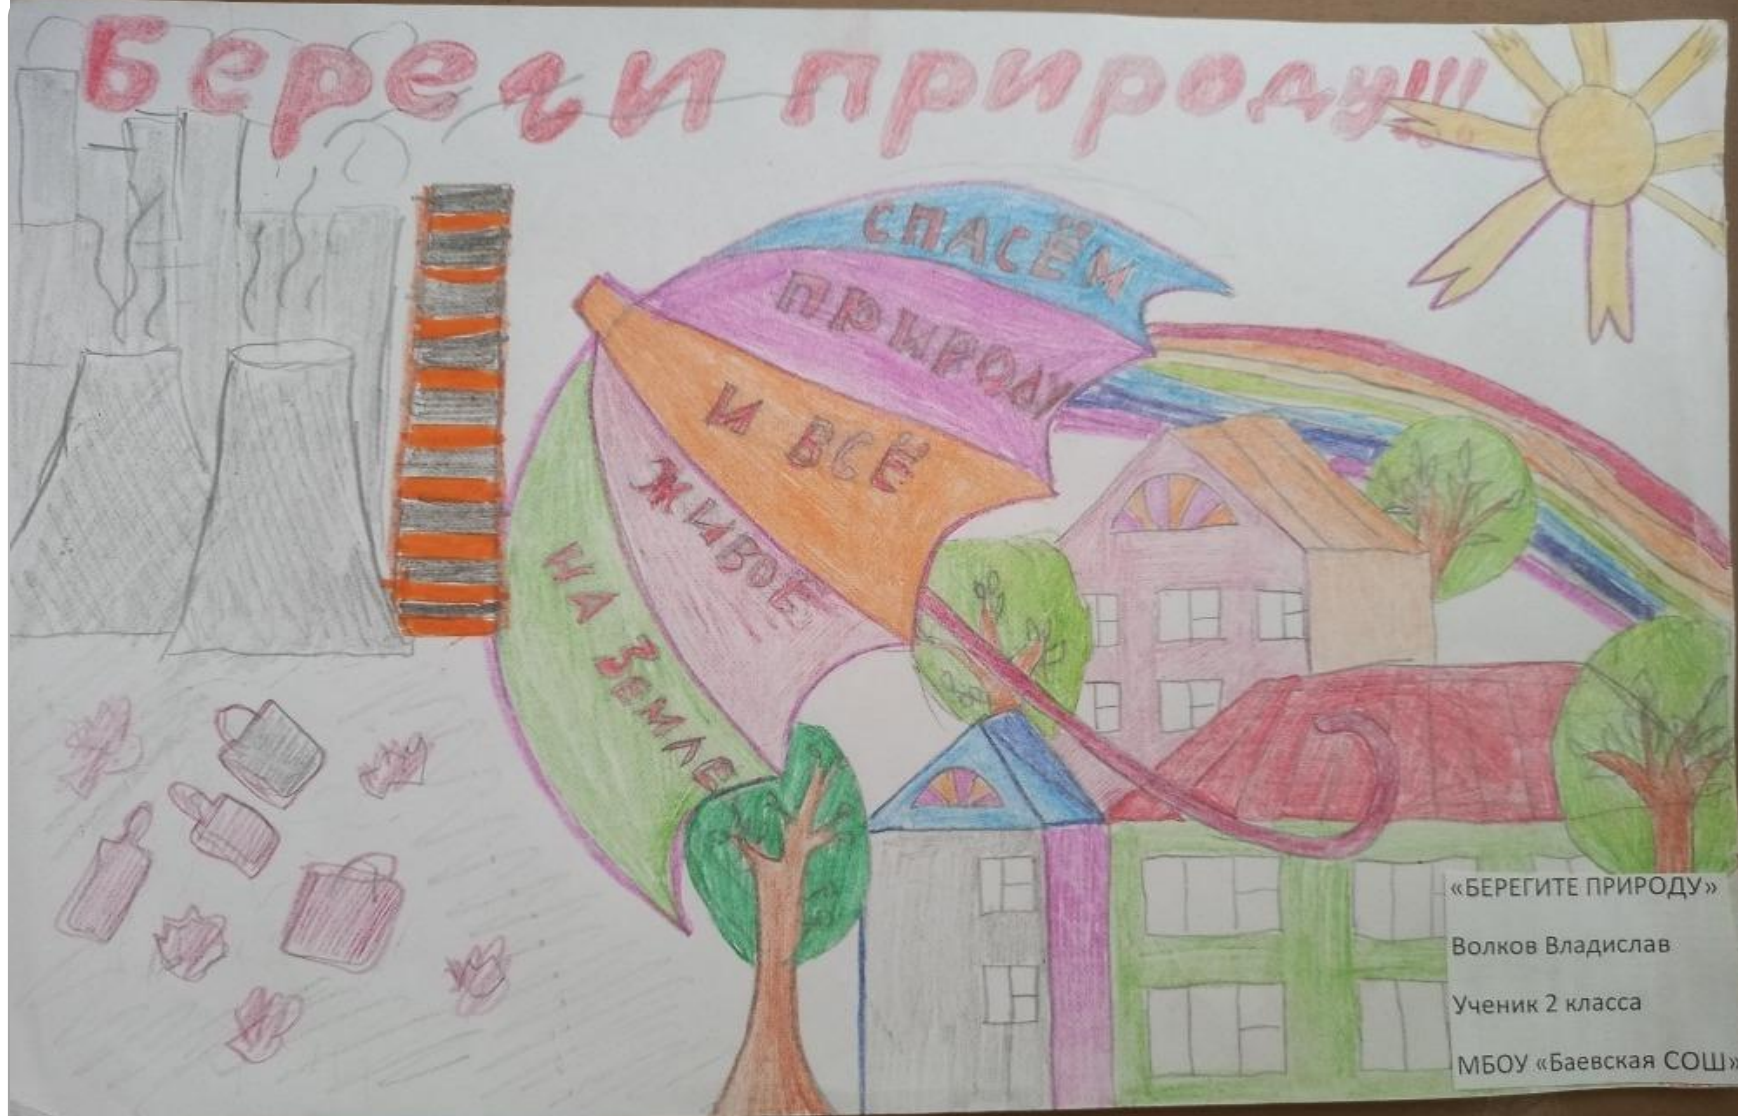 Береги природу!!!
СПАСЁМ
ПРИРОДУ
И ВСЁ
ЖИВОЕ
НА ЗЕМЛЕ
«БЕРЕГИТЕ ПРИРОДУ»
Волков Владислав
Ученик 2 класса
МБОУ «Баевская СОШ»